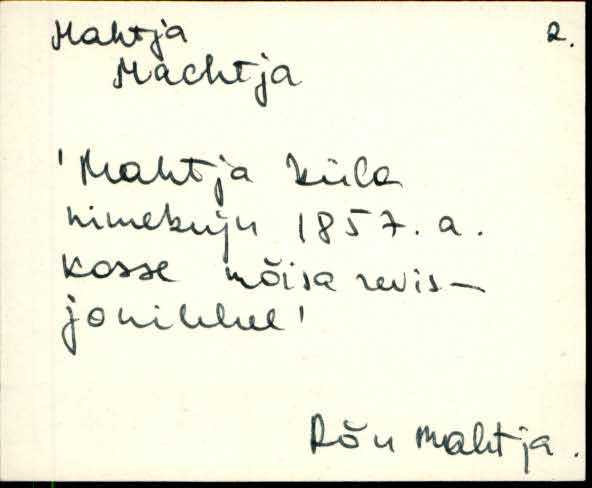 Mahtja 2.
Machtja
'Mahtja küla
nimekuju 1857. a.
Kosse mõisa revis-
jonilehel'
Rõu Mahtja.